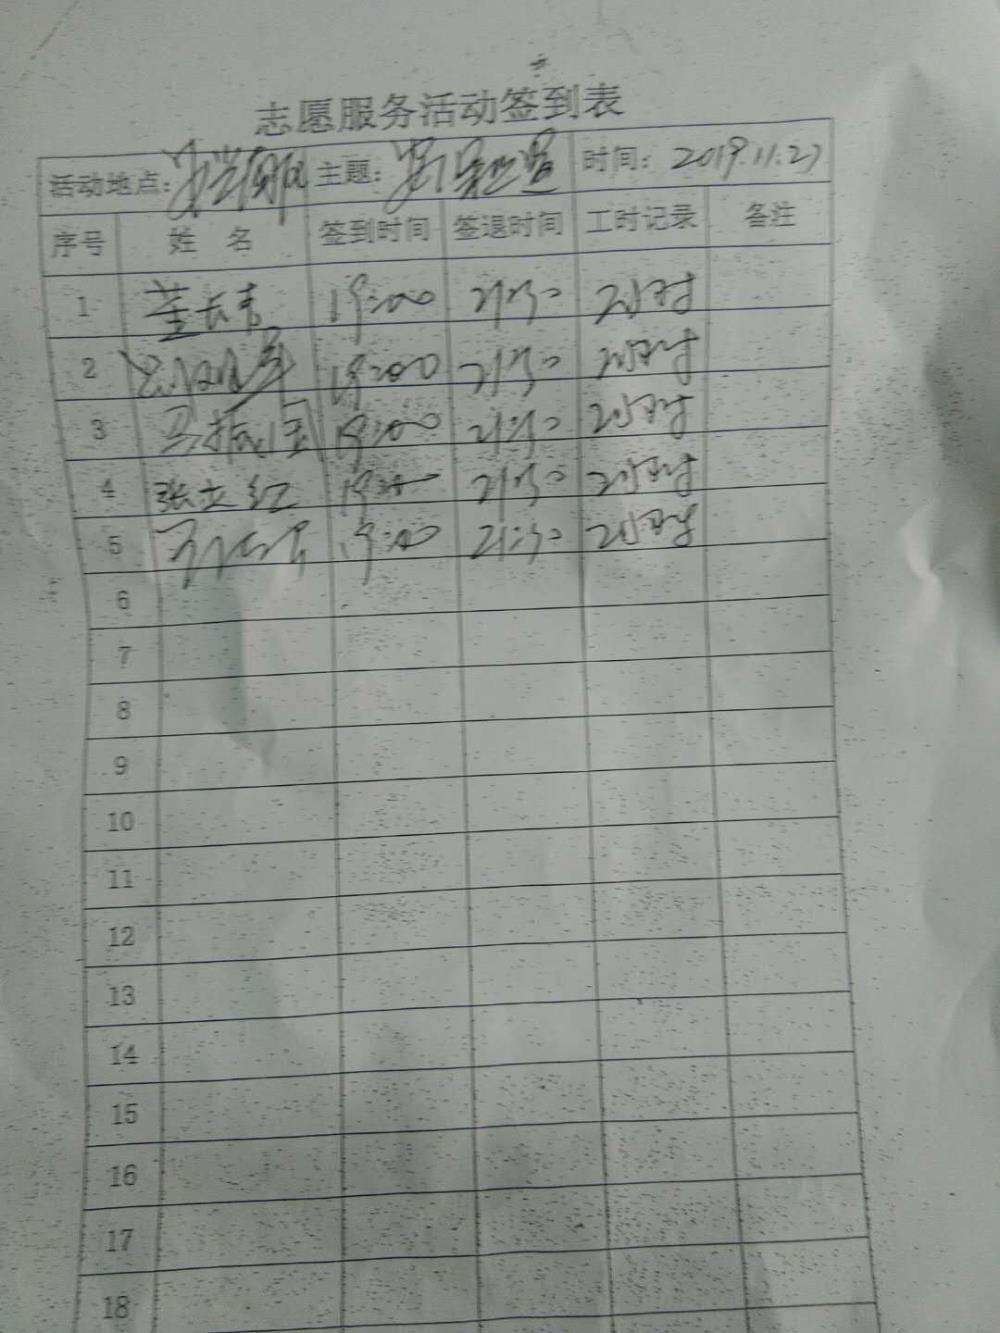 志愿服务活动签到表
活动地点: 主题: 时间: 2019.11.27
序号 姓 名 签到时间 签退时间 工时记录 备注
1 董长青 19:00 21:30 2小时
2 19:00 21:30 2小时
3 马振国 19:00 21:30 2小时
4 张立红 19:00 21:30 2小时
5 19:00 21:30 2小时
6
7
8
9
10
11
12
13
14
15
16
17
18